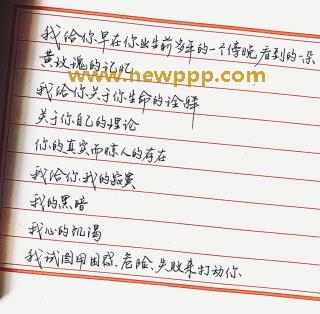 我给你早在你出生前多年的一个傍晚看到的一朵
黄玫瑰的记忆
www.newppp.com
我给你关于你生命的诠释
关于你自己的理论
你的真实而惊人的存在
我给你我的寂寞
我的黑暗
我心的饥渴
我试图用困惑、危险、失败来打动你